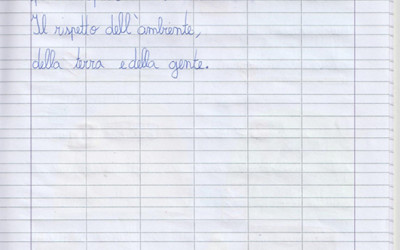 Il rispetto dell'ambiente,
della terra e della gente.